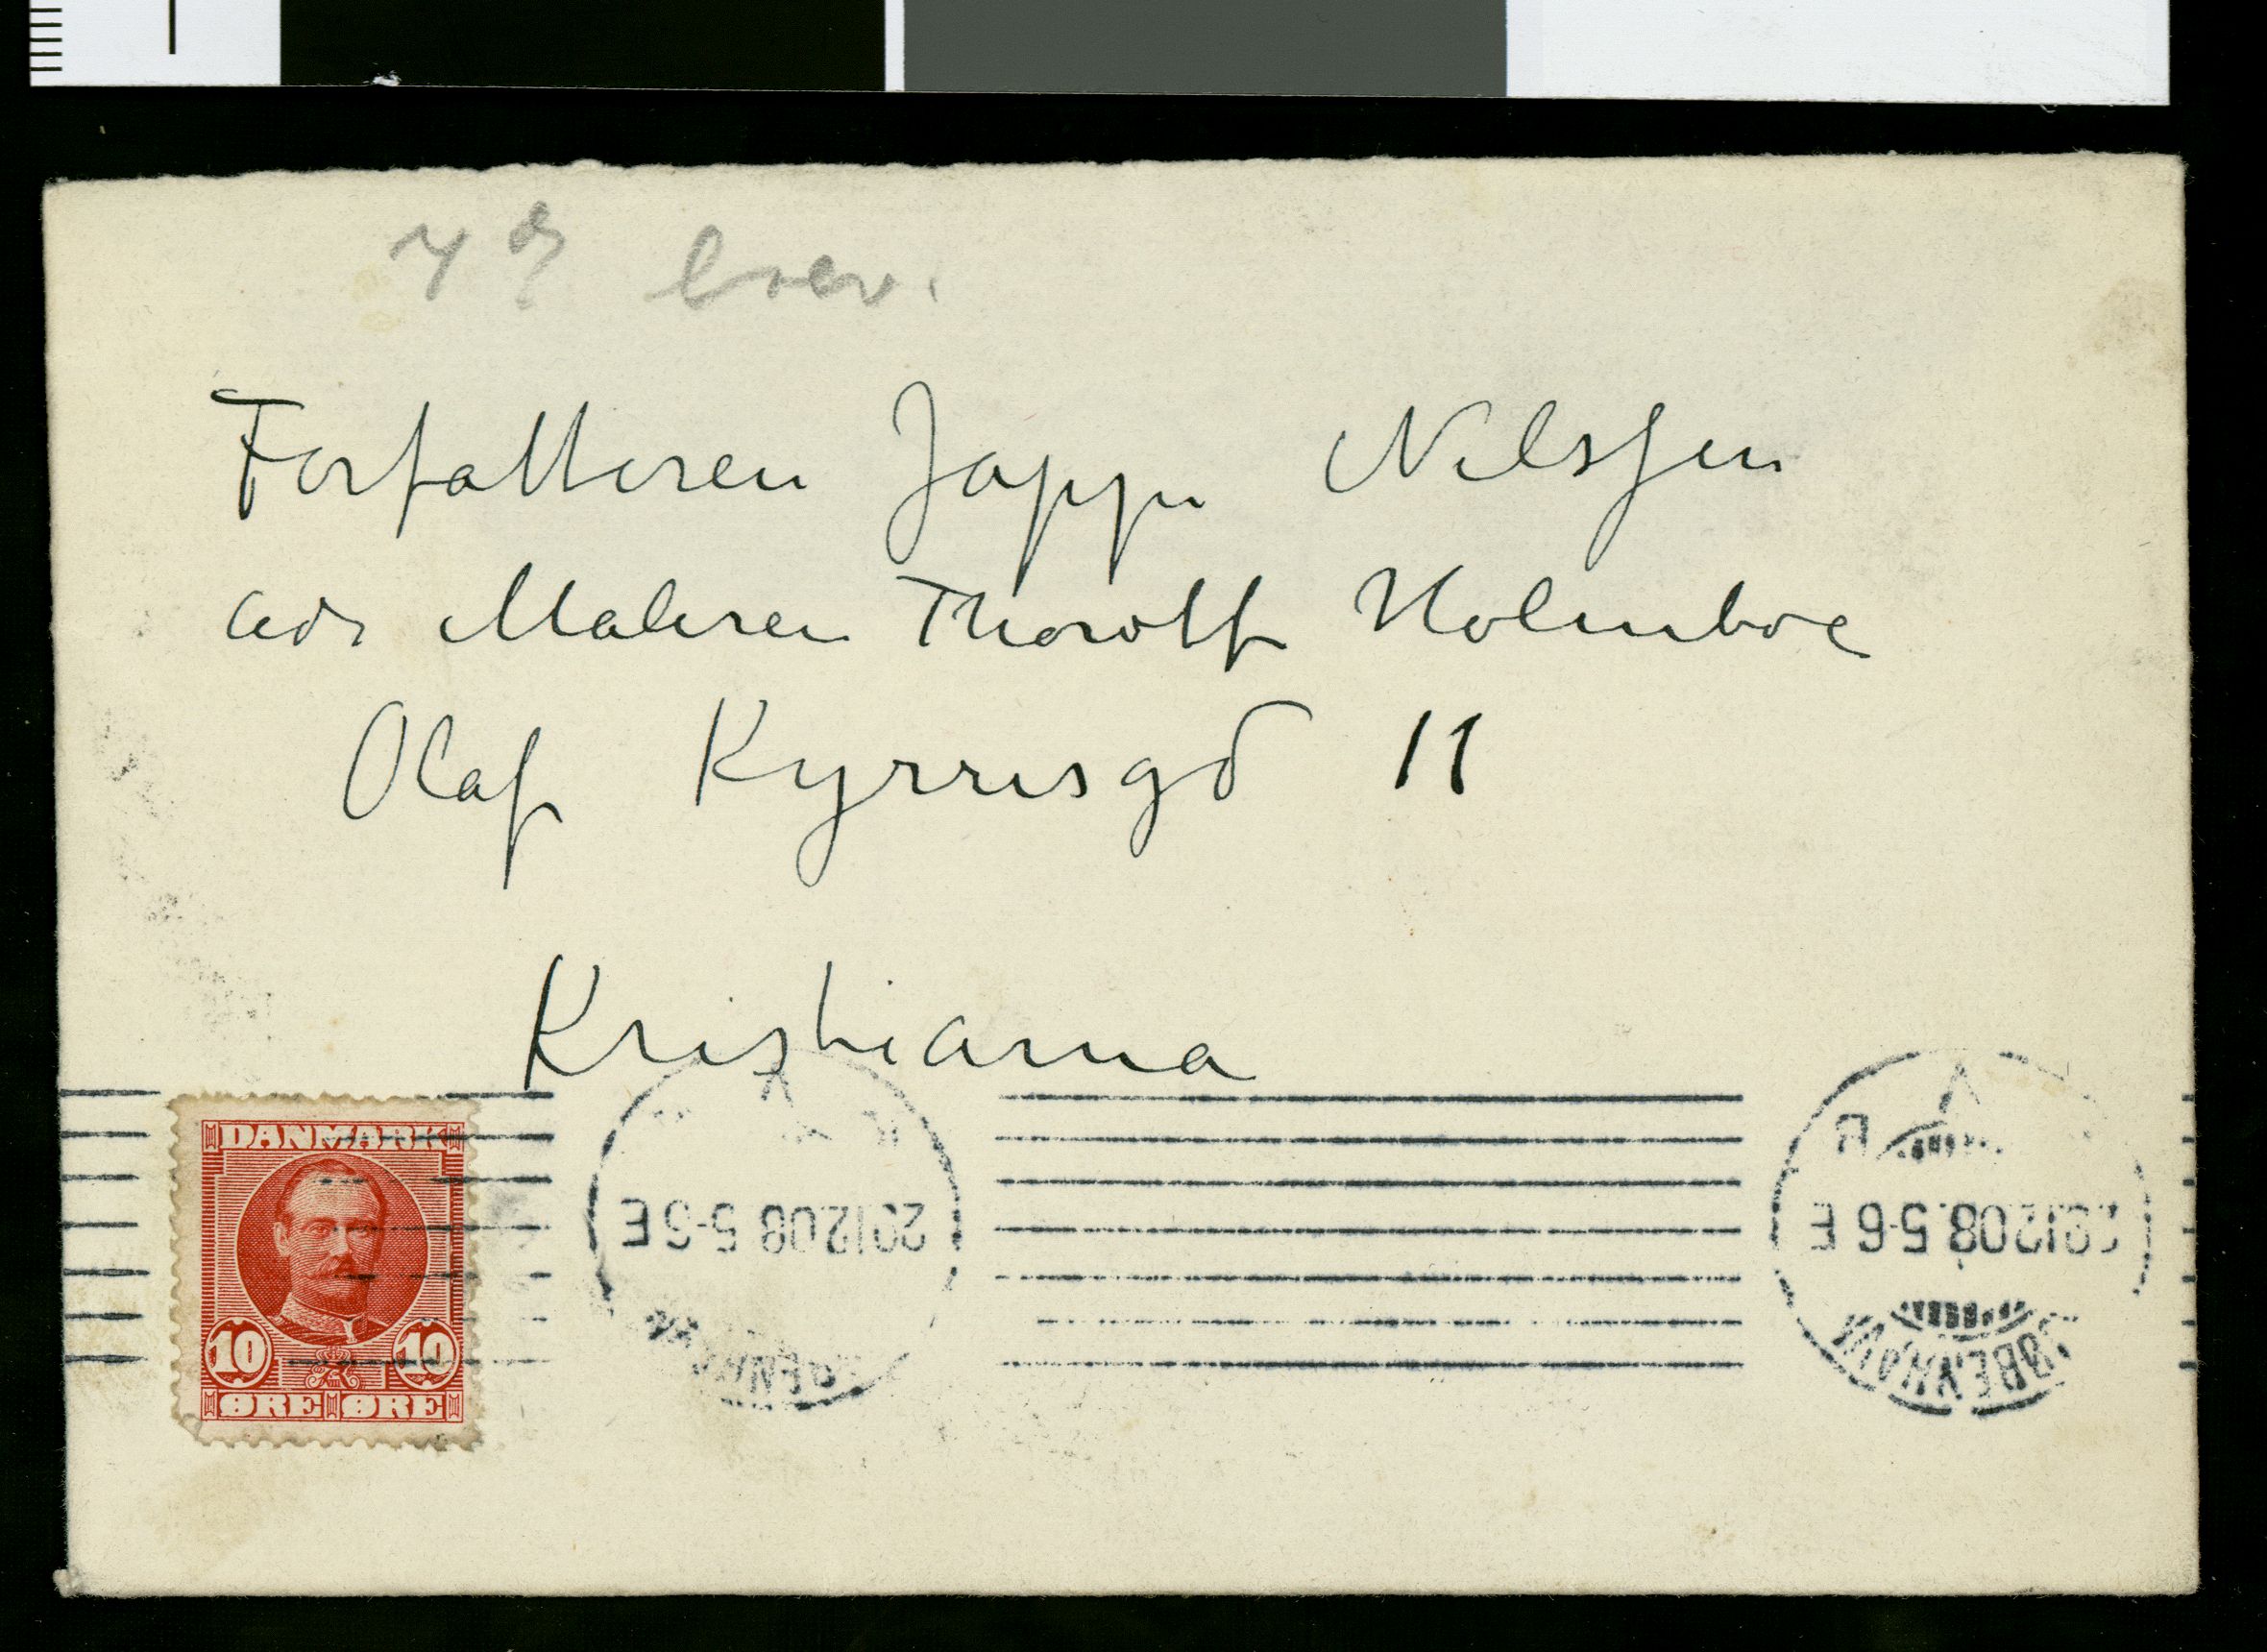 7de brev.
Forfatteren Jappe Nilssen
adr Maleren Thorolf Holmboe
Olaf Kyrresgd 11
Kristiania
DANMARK
10 10
ØRE ØRE
29.12.08 5-6 E
29.12.08 5-6 E
KØBENHAVN